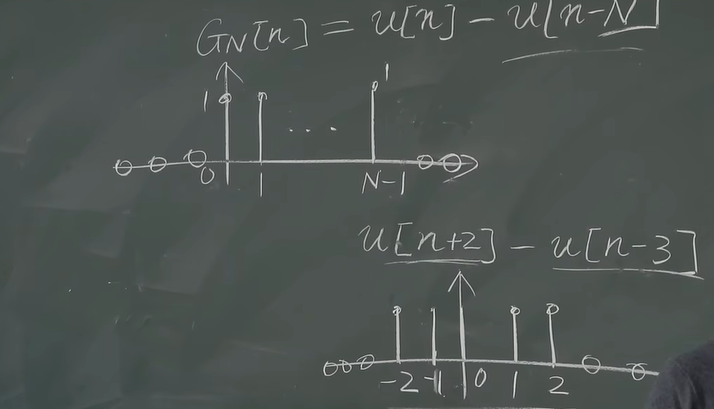 G_N[n] = u[n] - u[n-N]
1 1
... 
0 1 N-1
u[n+2] - u[n-3]
-2 -1 0 1 2